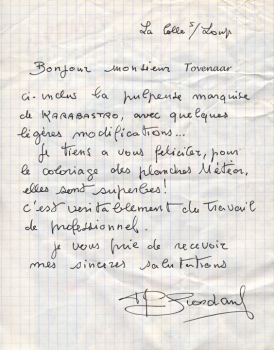 La Colle s/ Loup
Bonjour monsieur Tovenaar
ci-inclus la pulpeuse marquise
de KARABASTRO, avec quelques
légères modifications...
Je tiens a vous feliciter, pour
le coloriage des planches Météor,
elles sont superbes!
c'est veritablement du Travail
de professionnel.
je vous prie de recevoir
mes sinceres salutations